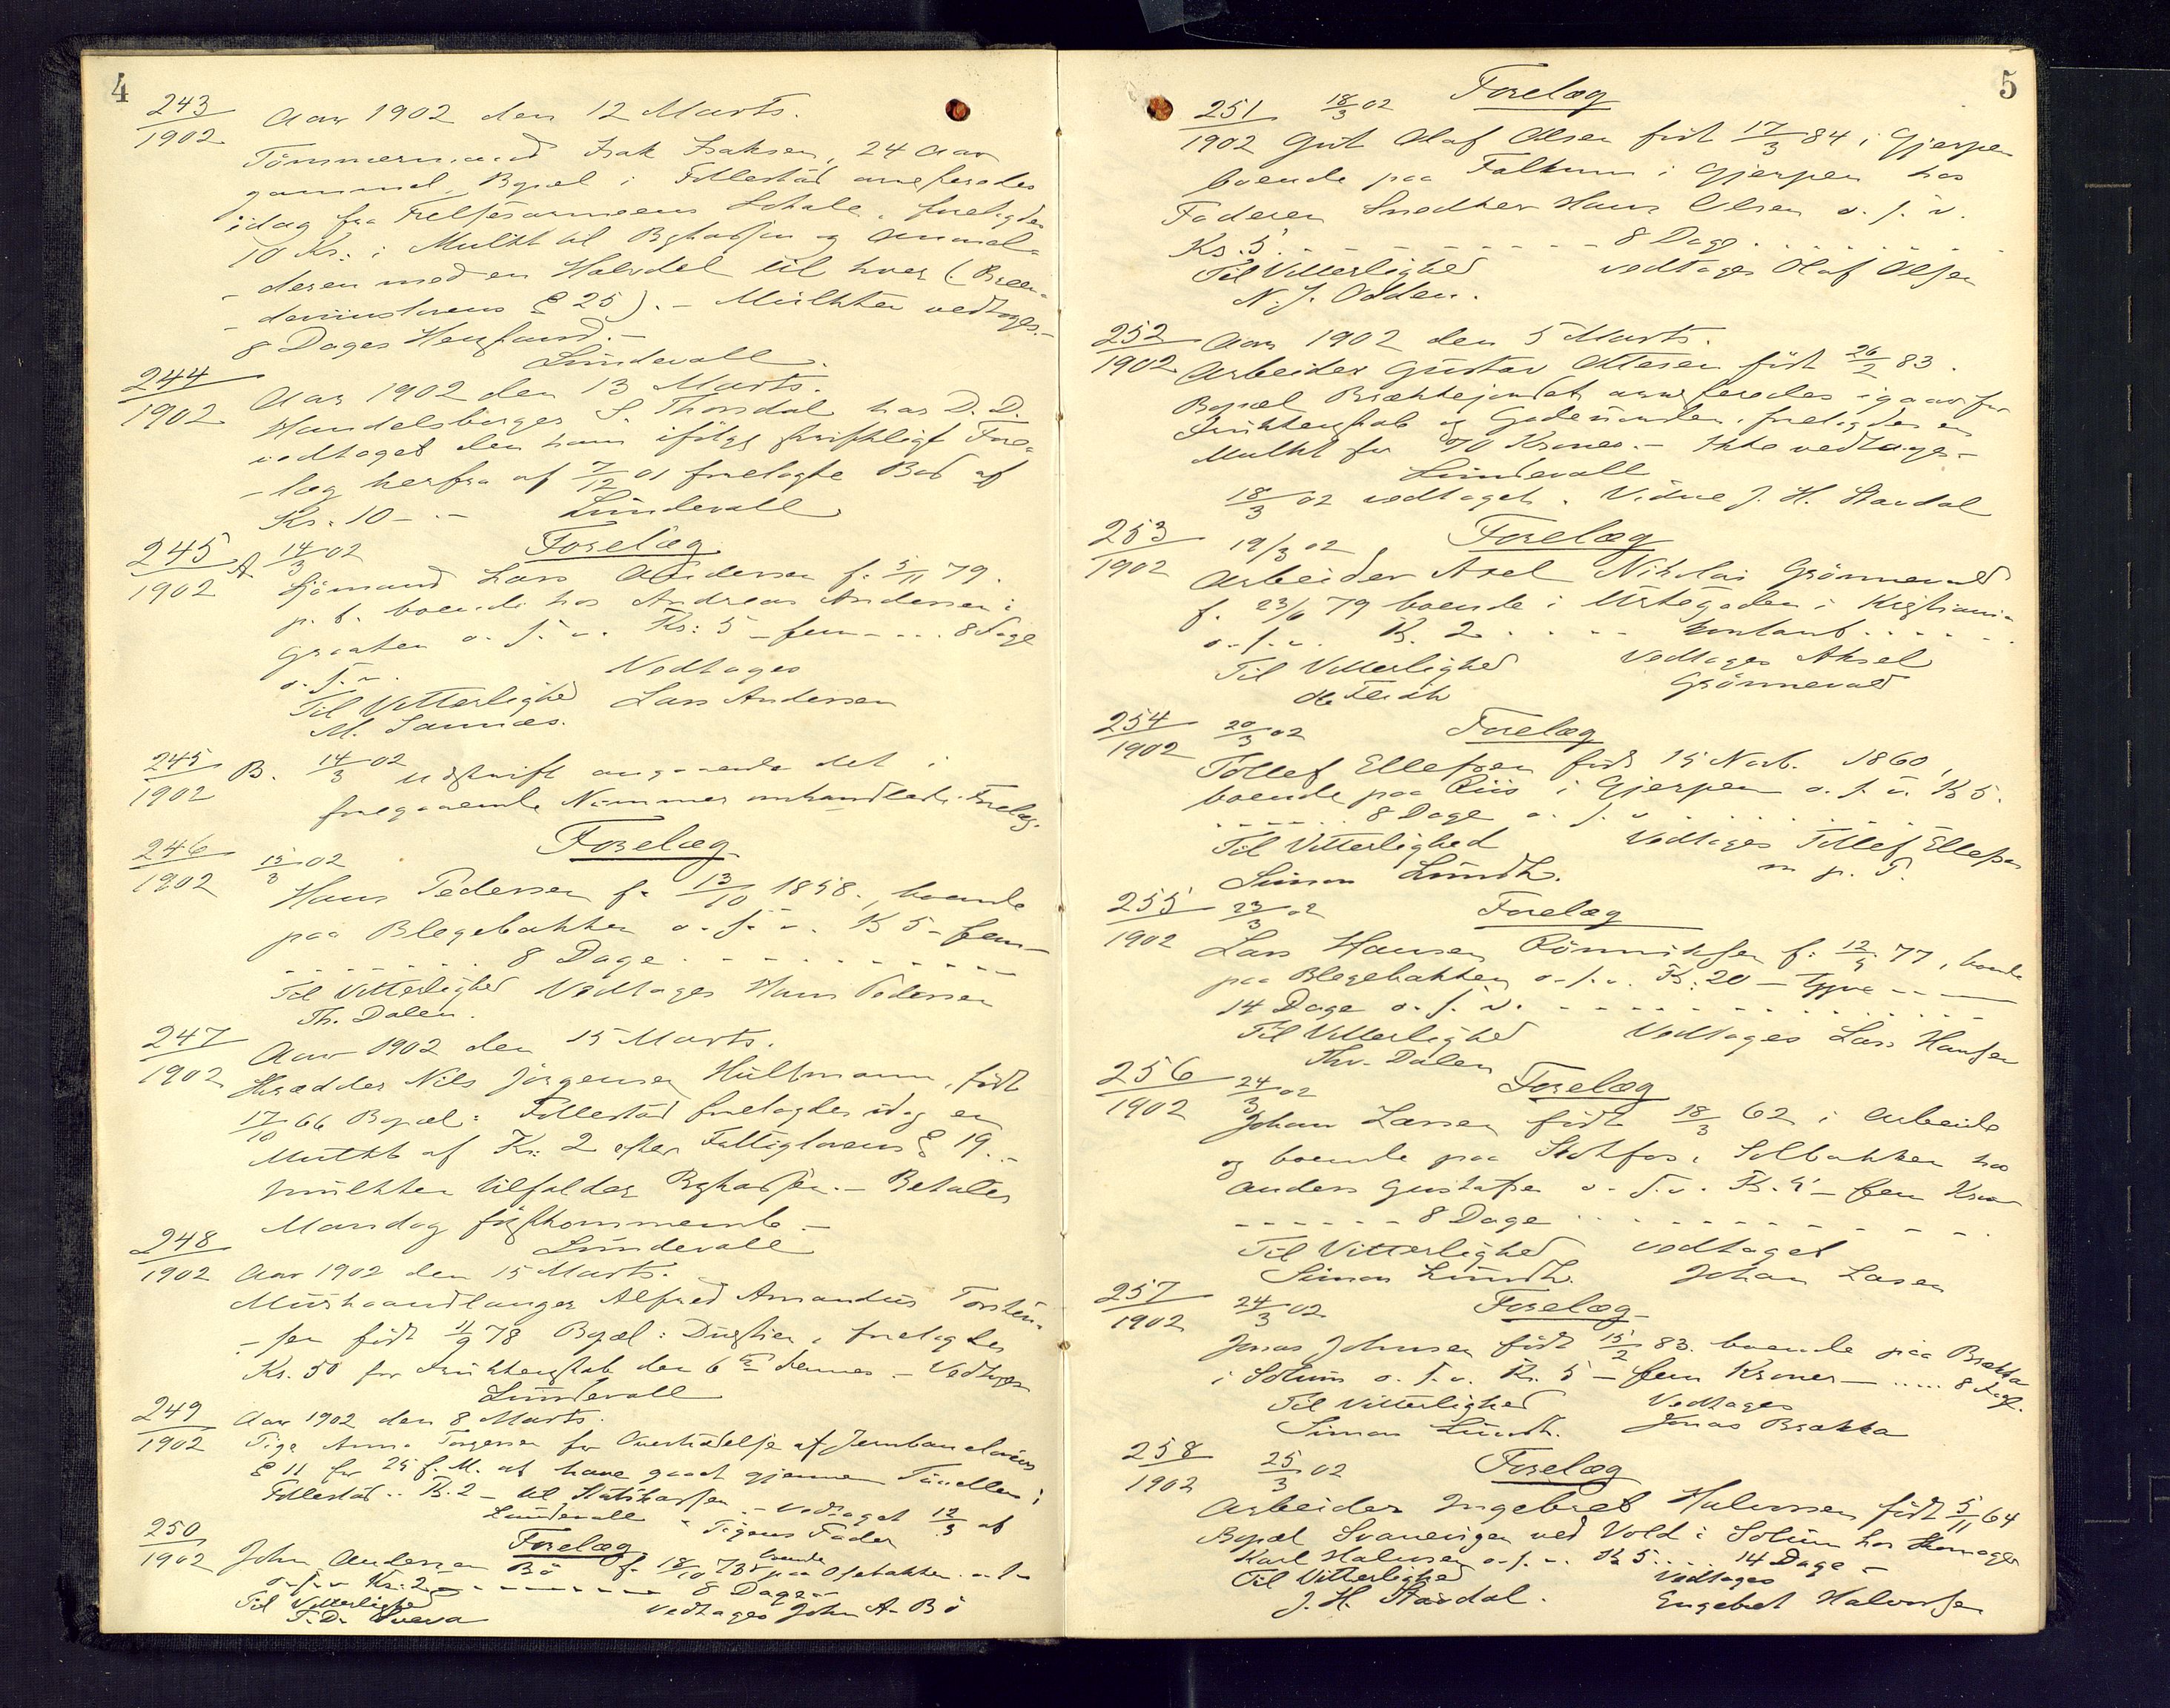 4
243
1902
Aar 1902 den 12 Marts.
Tömmermand Isak Isaksen, 24 Aar
gammel, Bopæl i Follestad arresteredes
idag fra Frelsesarmeens Lokale, forelagdes
10 Kr. i Mulkt til Bykassen og Anmel-
- deren med en Halvdel til hver (Bræn-
- devinslovens § 25). - Mulkten vedtoges. -
8 Dages Henstand. -
Lundevall.
244
1902
Aar 1902 den 13 Marts.
Handelsborger S. Thorsdal har D. D.
vedtaget den ham ifölge skriftligt Fore-
- læg herfra af 7/12 01 forelagte Bod af
Kr. 10 - . -
Lundevall
245 A
1902
14/3 02
Forelæg
Sjömand Lars Andersen f. 5/11 79.
p. t. boende hos Andreas Andersen i
Graaten o. s. v. Kr: 5 - fem - ... 8 Dage
o. s. v.
Vedtages
Til Vitterlighed Lars Andersen
M. Sannæs.
245 B.
1902
14/3 02 Udskrift angaaende det i
foregaaende Nummer omhandlede Forelæg.
246
1902
15/3 02
Forelæg
Hans Pedersen f. 13/10 1858., boende
paa Blegebakken o. s. v. Kr 5 - fem -
. . . . . . . 8 Dage . - - - - - - -
Til Vitterlighed Vedtages Hans Pedersen
Th. Dalen.
247
1902
Aar 1902 den 15 Marts.
Skrædder Nils Jörgensen Hultmann, födt
17/10 66 Bopæl: Follestad forelagdes idag en
Mulkt af Kr: 2 efter Fattiglovens § 19. -
Mulkten tilfalder Bykassen. - Betales
Mandag förstkommende. -
Lundevall
248
1902
Aar 1902 den 15 Marts.
Murhaandlanger Alfred Amandus Torsten-
- sen födt 11/9 78 Bopæl: Duestien, forelagdes
Kr. 50 for Drukkenskab den 6te dennes. - Vedtoges
Lundevall
249
1902
Aar 1902 den 8 Marts.
Pige Anna Torgersen for Overtrædelse af Jernbanelovens
§ 11 for 25 f. M. at have gaaet gjennem Tunellen i
Follestad .. Kr. 2 - til Statskassen. - Vedtaget 12/3 af
Lundevall - Pigens Fader
250
1902
Forelæg
John Andersen Bö f. 18/10 78 boende paa Osebakken
o. s. v. Kr: 2 - - - - - - - - 8 Dage -
Til Vitterlighed Vedtages John A. Bö
T. D. Sueva
5
251
1902
18/3 02
Forelæg
Gut Olaf Olsen födt 17/3 84 i Gjerpen
boende paa Falkum i Gjerpen hos
Faderen Snedker Hans Olsen o. s. v.
Kr. 5 . - - - - - - - - 8 Dage . . . . . .
Til Vitterlighed Vedtages Olaf Olsen
N. J. Odden.
252
1902
Aar 1902 den 5 Marts.
Arbeider Gustav Ottesen födt 26/2 83.
Bopæl Brækkejordet arresteredes igaar for
Drukkenskab og Gadeuorden, forelagdes en
Mulkt for 10 Kroner. - Ikke vedtages -
Lundevall
18/3 02 vedtaget. Vidne J. H. Stavdal
253
1902
19/3 02
Forelæg
Arbeider Axel Nikolai Grönnevold
f. 23/6 79 boende i Urtegaden i Kristiania
o. s. v. Kr. 2 . . . . - kontant . . . . . .
Til Vitterlighed Vedtages Aksel
Grönnevold
254
1902
20/3 02
Forelæg
Tollef Ellefsen födt 15 Novb. 1860,
boende paa Riis i Gjerpen o. s. v. Kr 5.
. . . . . . 8 Dage o. s. v. . . . . . .
Til Vitterlighed Vedtages Tollef Ellefsen
Simon Lundh. m. p. P.
255
1902
23/3 02
Forelæg
Lars Hansen Rönniksen f. 12/4 77, boende
paa Blegebakken o. s. v. Kr: 20 - tyve - - -
14 Dage o. s. v. - - - - - - - - -
Til Vitterlighed Vedtages Lars Hansen
Thv. Dalen
256
1902
24/3 02
Forelæg
Johan Larsen födt 18/3 62 i Arbeide
og boende paa Skotfos, Solbakken hos
Anders Gustafsen o. s. v. Kr. 5 - fem Kroner
- - - - - - 8 Dage . . - - - - - - -
Til Vitterlighed Vedtaget
Simon Lundh. Johan Lasen
257
1902
24/3 02
Forelæg
Jonas Johnsen födt 15/2 83. boende paa Brække
i Solum o. s. v. Kr. 5 - fem Kroner - ..... 8 Dage.
Til Vitterlighed Vedtages
Simon Lundh. Jonas Brække
258
1902
25/3 02
Forelæg
Arbeider Ingebret Halvorsen födt 5/11 64
Bopæl Svanevigen ved Vold i Solum hos Skomager
Karl Halvorsen o. s. v. Kr 5 .... 14 Dage -
Til Vitterlighed Vedtages
J. H. Stavdal. Engebret Halvorsen